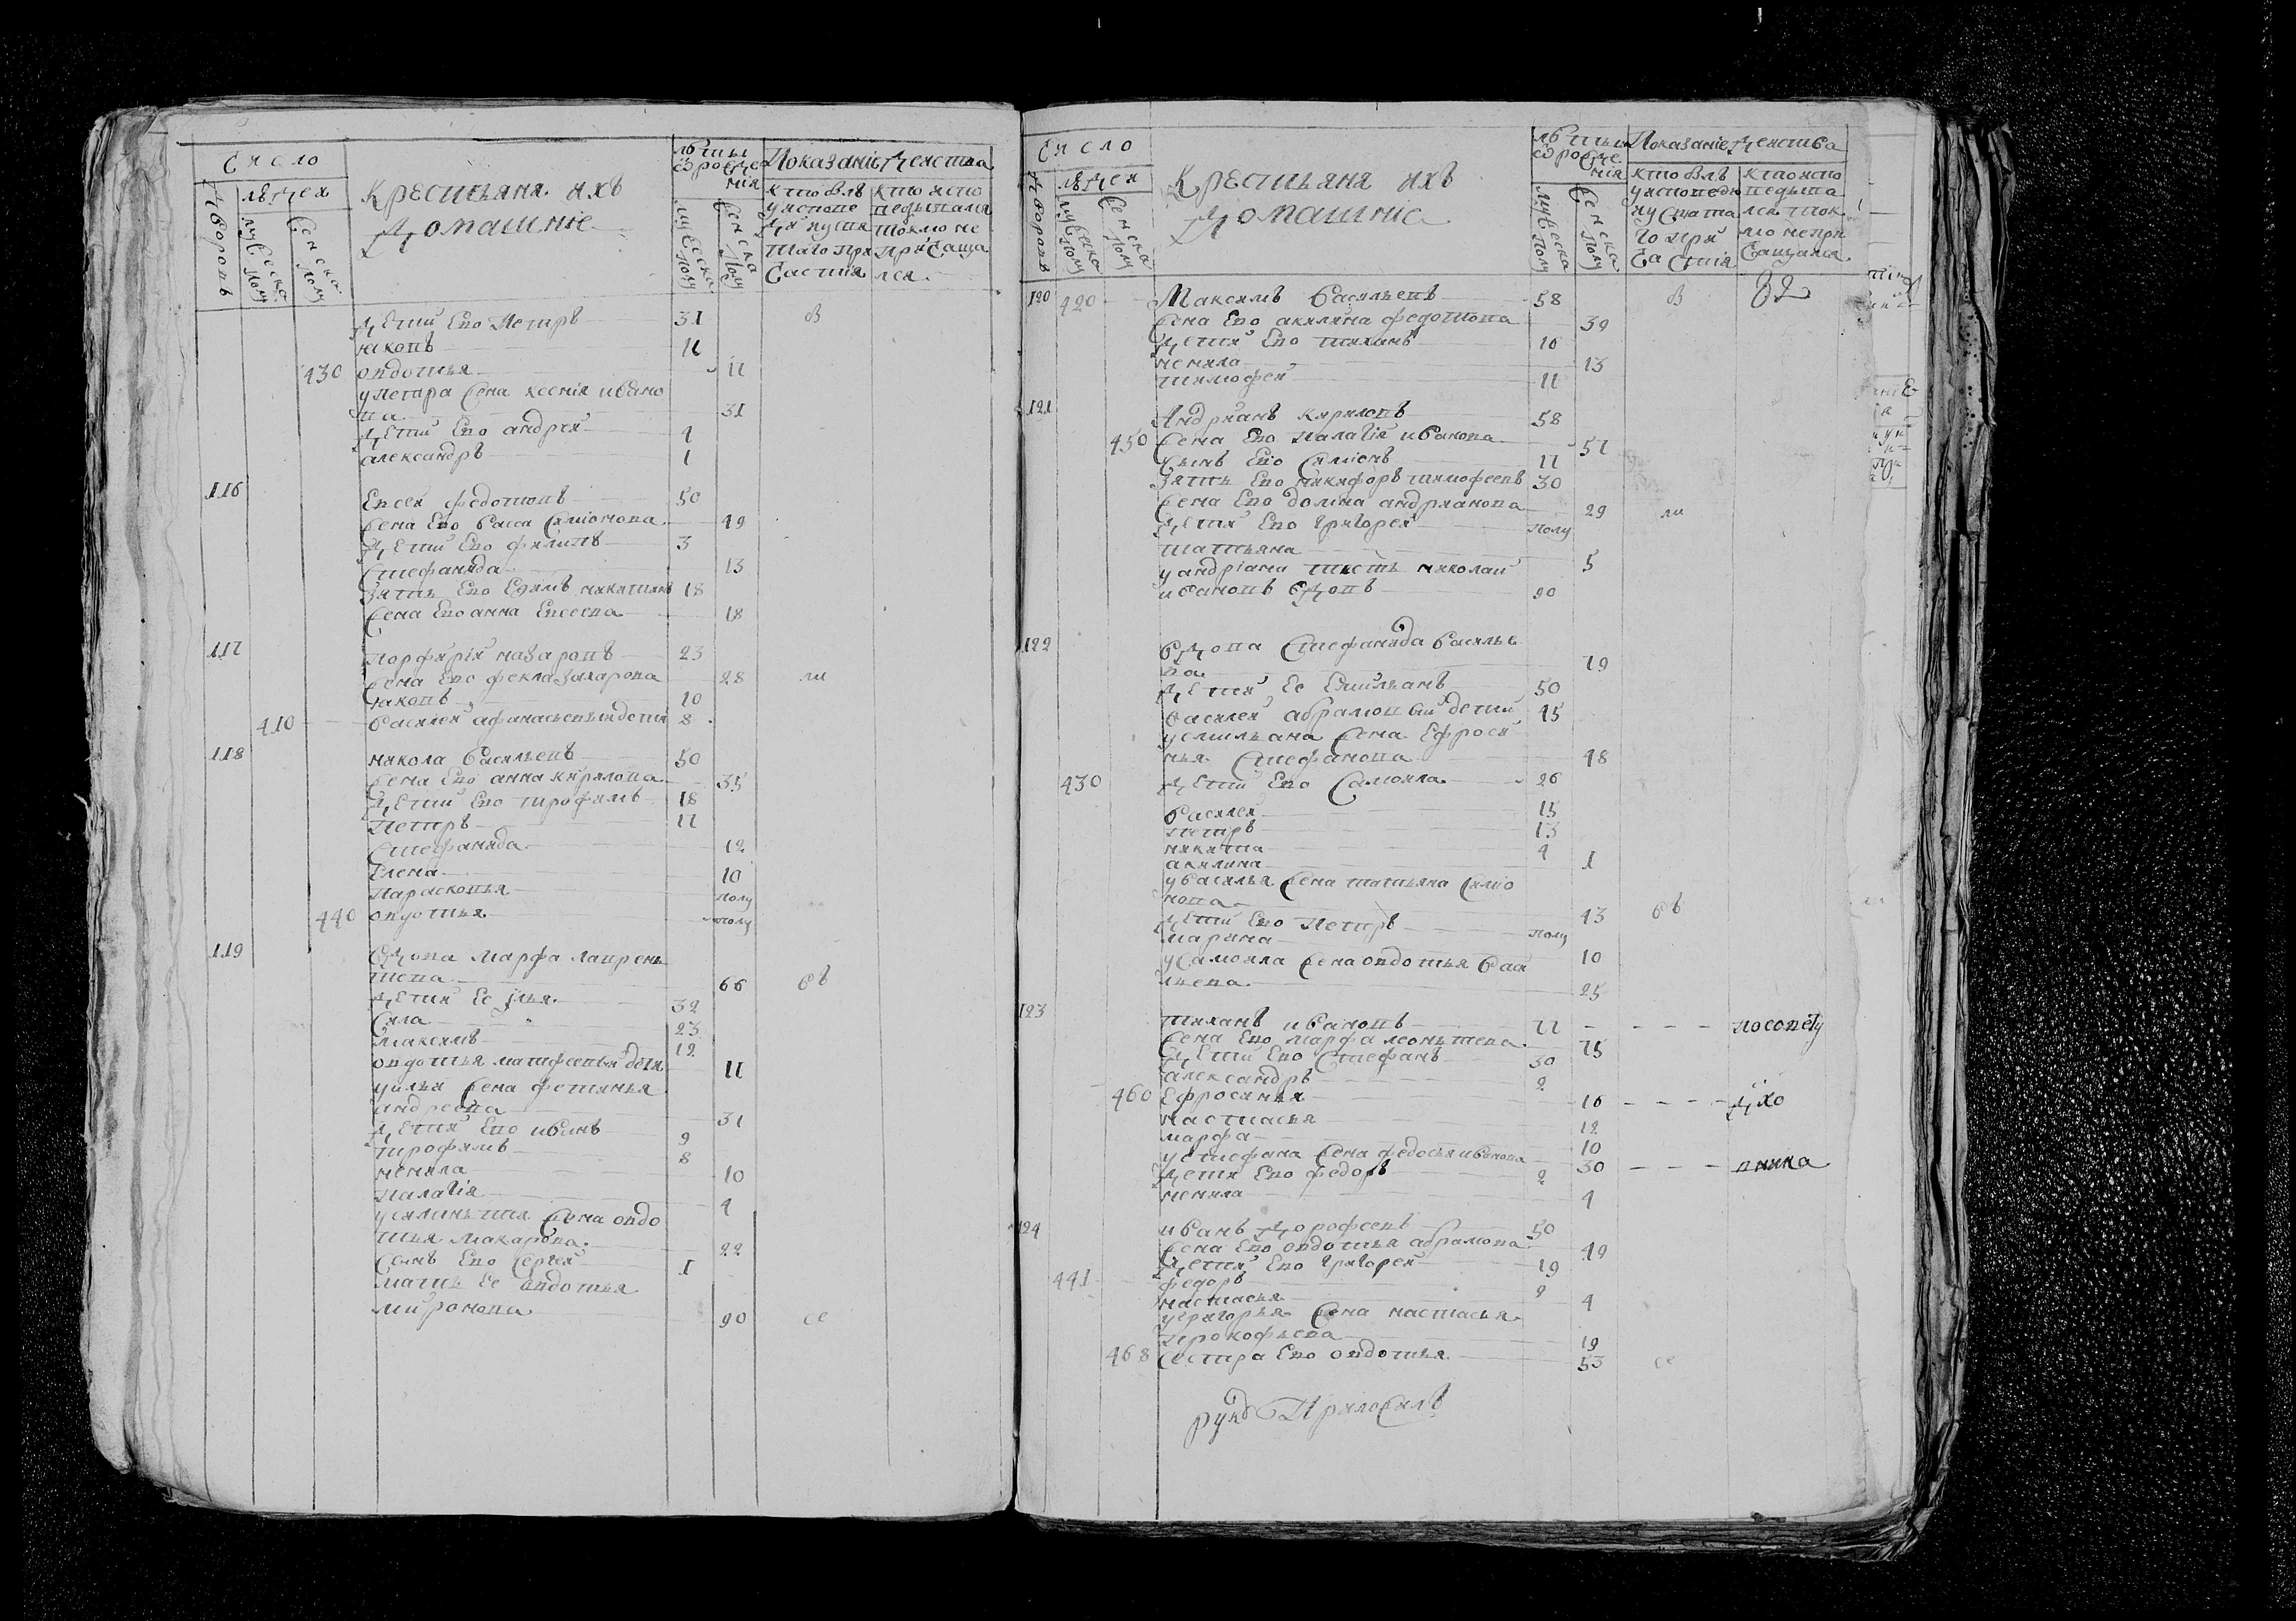 Число
людей
дворовъ
мужеска полу
женска полу
Крестьяня ихъ
домашние
лѣты
от рожде
ния
мужеска полу
женска полу
Показание действа
кто был
у испове
ди и свя
таго при
частия
кто испо
ведывался
токмо не
приѣаща
лся
дети Ево Петръ 31 в
яковъ 11
430 овдотья 11
у петра жена ксения ивано
ва 31
дети Ево андрей 4
александръ 1
116 Евсей федотовъ 50
жена Ево васа симионова 49
дети Ево филипъ 3
стефанида 13
Зять Ево Ефимъ никитинъ 18
жена Ево анна Евсеева 18
117 порфирий назаровъ 23
жена Ево фекла захарова 28 ли
яковъ 10
410 василей афанасьевы дети 8
118 никола васильевъ 50
жена Ево анна кирилова 35
дети Ево трофимъ 18
Петръ 11
стефанида 12
Елена 10
Парасковья полу
440 овдотья полу
119 вдова марфа лаврень
тева 66 св
дети Ее илья 32
сила 23
максимъ 12
овдотья матфеевы дети 11
у ильи жена фетинья
андреева 31
дети Ево иванъ 9
трофимъ 8
ненила 10
палагия 4
у силы жена овдо
тья макарова 22
сынъ Ево сергей 1
мать Ее овдотья
миронова 90 се
Число
людей
дворовъ
мужеска полу
женска полу
Крестьяня ихъ
домашние
лѣты
от рожде
ния
мужеска полу
женска полу
Показание действа
кто был
у исповеди
и свята
го при
частия
кто испо
ведыва
лся ток
мо не при
чащался
120 420 Максимъ васильевъ 58 в 82
жена Ево акилина федотова 39
дети Ево тиханъ 16
ненила 13
тимофей 11
121 Андриянъ кириловъ 58
450 жена Ево палагия иванова 57
сынъ Ево симионъ 17
зять Ево никифоръ тимофеевъ 30
жена Ево домна андриянова 29 ли
дети Ево григорей полу
татьяна 5
у андрияна тесть николай
ивановъ вдовъ 90
122 вдова стефанида василье
ва 79
дети Ее Емильянъ 50
василей абрамовы дети 45
у емильяна жена Ефроси
нья стефанова 48
430 дети Ево самойла 26
василей 15
петръ 13
никита 4
акилина 1
у василья жена татьяна симио
нова 43 св
дети Ево Петръ полу
марина 10
у самойла жена овдотья васи
льева 25
123 тиханъ ивановъ 77 - - - - по совету
жена Ево марфа леонтьева 75
дети Ево стефанъ 30
александръ 2
460 Ефросинья 16 - - - - духо
настасья 12
марфа 10
у стефана жена федосья иванова 30 - - - вника
дети Ево федоръ 2
ненила 4
124 иванъ дорофеевъ 50
жена Ево овдотья абрамова 49
дети Ево григорей 19
441 федоръ 2
настасья 4
у григорья жена настасья
прокофьева 19
468 сестра Ево овдотья 53 се